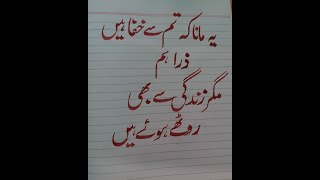 یہ مانا کہ تم سے خفا ہیں
ذرا ہم
مگر زندگی سے بھی
روٹھے ہوئے ہیں